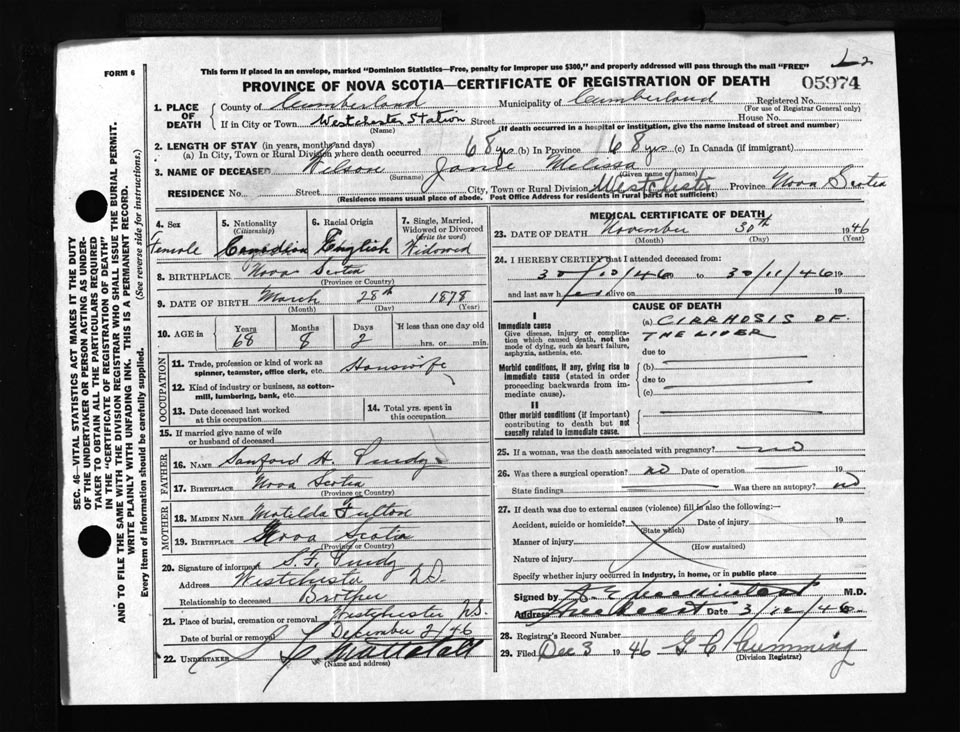 L2
FORM 6
This form if placed in an envelope, marked "Dominion Statistics—Free, penalty for improper use $300," and properly addressed will pass through the mail "FREE"
PROVINCE OF NOVA SCOTIA—CERTIFICATE OF REGISTRATION OF DEATH 05974
1. PLACE OF DEATH
County of Cumberland Municipality of Cumberland Registered No.
(For use of Registrar General only)
If in City or Town Westchester Station Street House No.
(Name) (If death occurred in a hospital or institution, give the name instead of street and number)
2. LENGTH OF STAY (in years, months and days)
(a) In City, Town or Rural Division where death occurred 68 yrs (b) In Province 68 yrs (c) In Canada (if immigrant)
3. NAME OF DECEASED Wilson Janie Melissa
(Surname) (Given name or names)
RESIDENCE No. Street City, Town or Rural Division Westchester Province Nova Scotia
(Residence means usual place of abode. Post Office Address for residents in rural parts not sufficient)
4. Sex
Female
5. Nationality
(Citizenship)
Canadian
6. Racial Origin
English
7. Single, Married, Widowed or Divorced
(Write the word)
Widowed
8. BIRTHPLACE Nova Scotia
(Province or Country)
9. DATE OF BIRTH March 28th 1878
(Month) (Day) (Year)
10. AGE in Years Months Days If less than one day old
68 8 2 hrs. or min.
OCCUPATION
11. Trade, profession or kind of work as spinner, teamster, office clerk, etc. Houswife
12. Kind of industry or business, as cotton-mill, lumbering, bank, etc.
13. Date deceased last worked at this occupation
14. Total yrs. spent in this occupation
15. If married give name of wife or husband of deceased
FATHER
16. NAME Sanford H. Purdy
17. BIRTHPLACE Nova Scotia
(Province or Country)
MOTHER
18. MAIDEN NAME Matilda Fulton
19. BIRTHPLACE Nova Scotia
(Province or Country)
20. Signature of informant S. F. Purdy
Address Westchester N.S.
Relationship to deceased Brother
21. Place of burial, cremation or removal Westchester N.S.
Date of burial or removal December 2/46
22. UNDERTAKER Mattatall
(Name and address)
MEDICAL CERTIFICATE OF DEATH
23. DATE OF DEATH November 30th 1946
(Month) (Day) (Year)
24. I HEREBY CERTIFY that I attended deceased from:
30/10/46 19 to 30/11/46 19
and last saw her alive on 19
CAUSE OF DEATH
I
Immediate cause
Give disease, injury or complication which caused death, not the mode of dying, such as heart failure, asphyxia, asthenia, etc.
(a) CIRRHOSIS OF
THE LIVER
due to
Morbid conditions, if any, giving rise to immediate cause (stated in order proceeding backwards from immediate cause).
(b)
due to
(c)
II
Other morbid conditions (if important) contributing to death but not causally related to immediate cause.
25. If a woman, was the death associated with pregnancy? no
26. Was there a surgical operation? no Date of operation 19
State findings Was there an autopsy? no
27. If death was due to external causes (violence) fill in also the following:—
Accident, suicide or homicide? Date of injury 19
(State which)
Manner of injury
(How sustained)
Nature of injury
Specify whether injury occurred in industry, in home, or in public place
Signed by M.D.
Address Date 3/12/46
28. Registrar's Record Number
29. Filed Dec 3 1946 G C Cumming
(Division Registrar)
SEC. 46—VITAL STATISTICS ACT MAKES IT THE DUTY
OF THE UNDERTAKER OR PERSON ACTING AS UNDER-
TAKER TO OBTAIN ALL THE PARTICULARS REQUIRED
IN THE "CERTIFICATE OF REGISTRATION OF DEATH"
AND TO FILE THE SAME WITH THE DIVISION REGISTRAR WHO SHALL ISSUE THE BURIAL PERMIT.
WRITE PLAINLY WITH UNFADING INK. THIS IS A PERMANENT RECORD.
Every item of information should be carefully supplied. (See reverse side for instructions.)